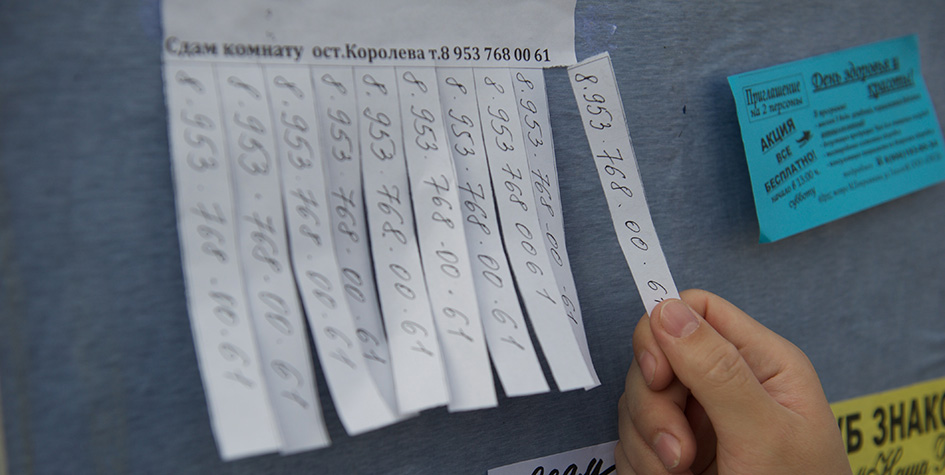 Сдам комнату ост.Королева т.8 953 768 00 61
8.953.768.00.61
8.953.768.00.61
8.953.768.00.61
8.953.768.00.61
8.953.768.00.61
8.953.768.00.61
8.953.768.00.61
8.953 768 00 61
8.953.768.00.61
8.953.768.00.61
Приглашение
на 2 персоны
День здоровья и
красоты!
АКЦИЯ
ВСЕ
БЕСПЛАТНО!
начало в 13.00 ч.
суббота
УБ ЗНАКО